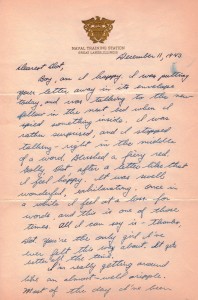 NAVAL TRAINING STATION
GREAT LAKES, ILLINOIS
December 11, 1943
Dearest Dot,
Boy, am I happy. I was putting
your letter away in its envelope
today and was talking to the new
fellow in the next bed when I
spied something inside. I was
rather surprised, and I stopped
talking - right in the middle
of a word, blushed a fiery red.
Golly Dot after a letter like that
I feel happy. It was swell
wonderful, exhilarating. Once in
a while I feel at a loss for
words, and this is one of those
times. All I can say is - thanks
Dot, you're the only girl I've
ever felt this way about. It gets
better all the time.
I'm really getting around
like an almost-well cripple.
Most of the day I've been